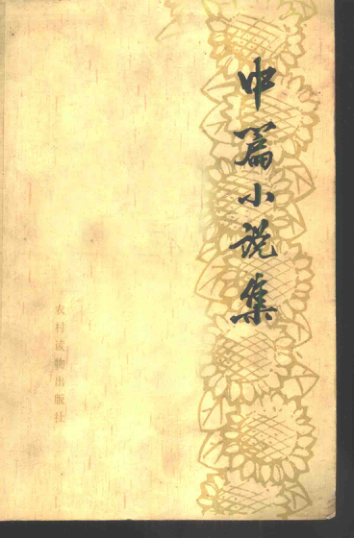 中篇小说集
农村读物出版社